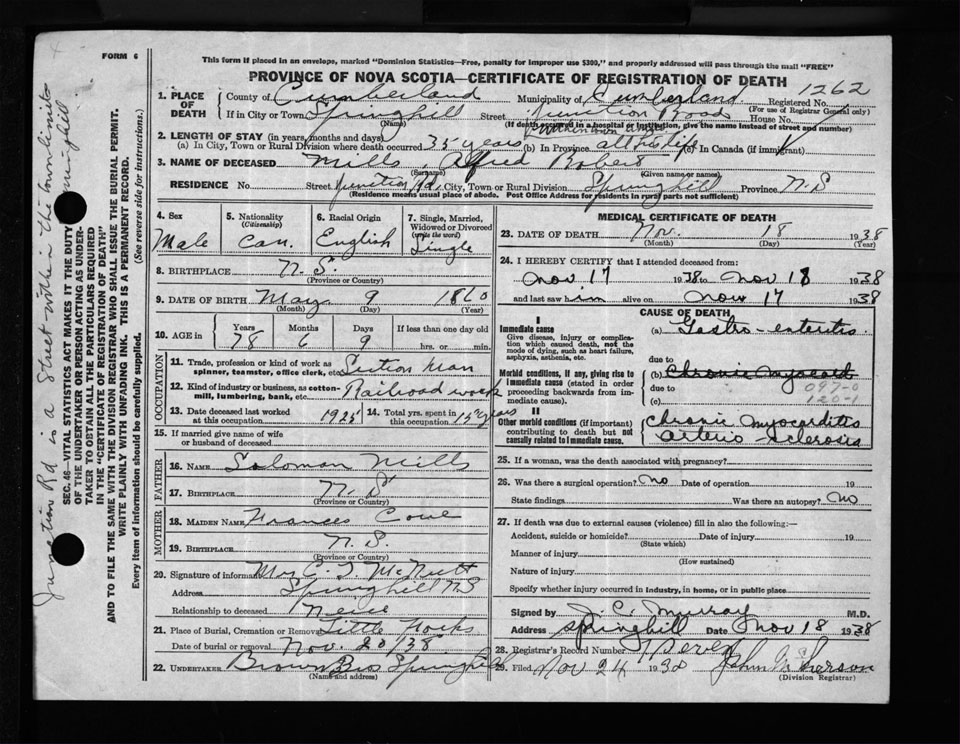 FORM 6
This form if placed in an envelope, marked "Dominion Statistics—Free, penalty for improper use $300," and properly addressed will pass through the mail "FREE"
PROVINCE OF NOVA SCOTIA—CERTIFICATE OF REGISTRATION OF DEATH
1262
1. PLACE OF DEATH
County of Cumberland Municipality of Cumberland Registered No.
(For use of Registrar General only)
If in City or Town Springhill Street Junction Road House No.
(Name) (If death occurred in a hospital or institution, give the name instead of street and number)
2. LENGTH OF STAY (in years, months and days)
(a) In City, Town or Rural Division where death occurred 35 years (b) In Province all his life (c) In Canada (if immigrant)
3. NAME OF DECEASED Mills, Alfred Robert
(Surname) (Given name or names)
RESIDENCE No. Street Junction Rd, City, Town or Rural Division Springhill Province N.S
(Residence means usual place of abode. Post Office Address for residents in rural parts not sufficient)
4. Sex
Male
5. Nationality
(Citizenship)
Can.
6. Racial Origin
English
7. Single, Married, Widowed or Divorced
(write the word)
Single
8. BIRTHPLACE N.S.
(Province or Country)
9. DATE OF BIRTH May 9 1860
(Month) (Day) (Year)
10. AGE in Years Months Days If less than one day old
78 6 9 hrs. or min.
OCCUPATION
11. Trade, profession or kind of work as spinner, teamster, office clerk, etc. Section Man
12. Kind of industry or business, as cotton-mill, lumbering, bank, etc. Railroad work
13. Date deceased last worked at this occupation 1925 14. Total yrs. spent in this occupation 15 years
15. If married give name of wife or husband of deceased
FATHER
16. NAME Soloman Mills
17. BIRTHPLACE N.S
(Province or Country)
MOTHER
18. MAIDEN NAME Frances
19. BIRTHPLACE N.S.
(Province or Country)
20. Signature of informant McNutt
Address Springhill NS
Relationship to deceased Neice
21. Place of Burial, Cremation or Removal Little Forks
Date of burial or removal Nov. 20/38
22. UNDERTAKER Brown Bros Springhill
(Name and address)
MEDICAL CERTIFICATE OF DEATH
23. DATE OF DEATH Nov. 18 1938
(Month) (Day) (Year)
24. I HEREBY CERTIFY that I attended deceased from:
Nov 17 1938 to Nov 18 1938
and last saw him alive on Nov 17 1938
CAUSE OF DEATH
I
Immediate cause
Give disease, injury or complication which caused death, not the mode of dying, such as heart failure, asphyxia, asthenia, etc.
(a) Gastro-enteritis
due to
Morbid conditions, if any, giving rise to immediate cause (stated in order proceeding backwards from immediate cause).
(b) Chronic Myocard
due to 097-0
(c) 120-1
II
Other morbid conditions (if important) contributing to death but not causally related to immediate cause.
Chronic Myocarditis
Arterio-Sclerosis
25. If a woman, was the death associated with pregnancy?
26. Was there a surgical operation? No Date of operation 19
State findings Was there an autopsy? No
27. If death was due to external causes (violence) fill in also the following:—
Accident, suicide or homicide? Date of injury 19
(State which)
Manner of injury
(How sustained)
Nature of injury
Specify whether injury occurred in industry, in home, or in public place
Signed by J. C. Murray M.D.
Address Springhill Date Nov 18 1938
28. Registrar's Record Number
29. Filed Nov 24 1938
(Division Registrar)
SEC. 46—VITAL STATISTICS ACT MAKES IT THE DUTY
OF THE UNDERTAKER OR PERSON ACTING AS UNDER-
TAKER TO OBTAIN ALL THE PARTICULARS REQUIRED
IN THE "CERTIFICATE OF REGISTRATION OF DEATH"
AND TO FILE THE SAME WITH THE DIVISION REGISTRAR WHO SHALL ISSUE THE BURIAL PERMIT.
WRITE PLAINLY WITH UNFADING INK. THIS IS A PERMANENT RECORD.
Every item of information should be carefully supplied. (See reverse side for instructions.)
Junction Rd is a Street within the town limits
Springhill